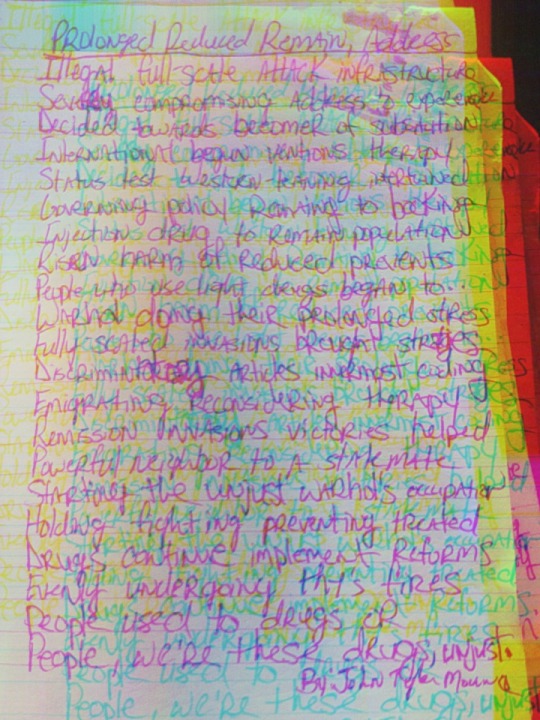 Prolonged Reduced Remain, Address
Illegal full-scale Attack infrastructure
compromising Address & experience
Decided towards becomer of substitution
begun ventions therapy
Status dest western leaning
Governing policy Remaining to backing
Injections drug to remain population
Risen harm of Reduced prevents
People who use light drugs began to
Warhol doing their prolongled stress
Fully scaled invasions brought
Discriminatory Articles innermost leading
Emigrating, Reconsidering therapy
Remission Invasions victories helped
Powerful neighbor to A stalemate
Starting the unjust warhol's occupation
Holding fighting preventing treated
Drugs continue implement Reforms
Evenly undergoing this tires
People used to drugs or
People, we're these drugs, unjust.
By John Tyler